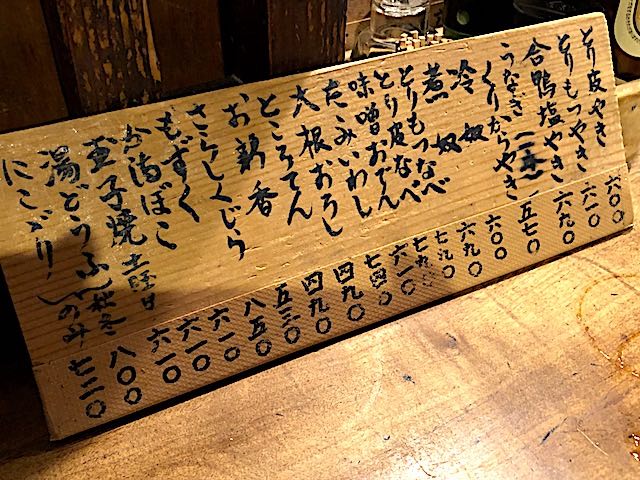 とり皮やき 六〇〇
とりもつやき 六一〇
合鴨塩やき 六九〇
うなぎくりからやき 五七〇
冷奴 六〇〇
煮奴 六九〇
とりもつなべ 七九〇
とり皮なべ 七九〇
味噌おでん 六一〇
たゝみいわし 七四〇
大根おろし 四九〇
ところてん 四九〇
お新香 五三〇
さらしくじら 八五〇
もずく 六一〇
か満ぼこ 六一〇
玉子焼 土曜日 六一〇
湯どうふ 秋冬 八〇〇
にこごり のみ 七二〇